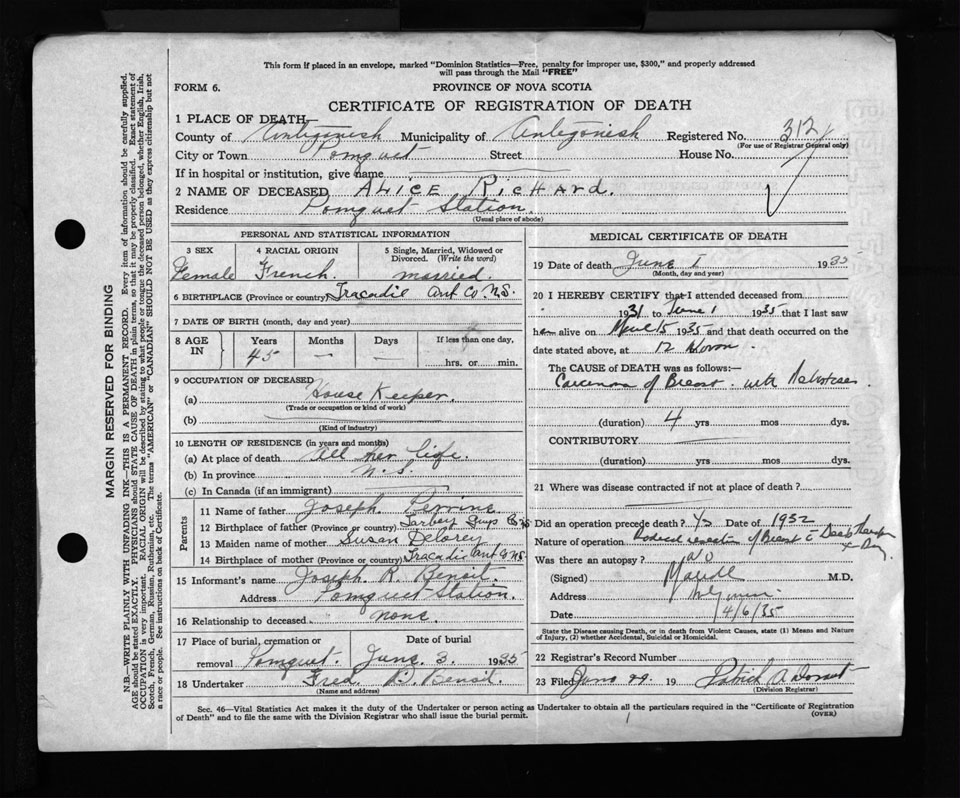 This form if placed in an envelope, marked "Dominion Statistics—Free, penalty for improper use, $300," and properly addressed
will pass through the Mail "FREE"
FORM 6.
PROVINCE OF NOVA SCOTIA
CERTIFICATE OF REGISTRATION OF DEATH
1 PLACE OF DEATH—
County of Antigonish Municipality of Antigonish Registered No. 312
(For use of Registrar General only)
City or Town Pomquet Street House No.
If in hospital or institution, give name
2 NAME OF DECEASED ALICE RICHARD.
Residence Pomquet Station.
(Usual place of abode)
PERSONAL AND STATISTICAL INFORMATION
3 SEX 4 RACIAL ORIGIN 5 Single, Married, Widowed or
Divorced. (Write the word)
Female French. married.
6 BIRTHPLACE (Province or country) Tracadie Ant Co N.S.
7 DATE OF BIRTH (month, day and year)
8 AGE IN Years Months Days If less than one day,
45 — — hrs. or min.
9 OCCUPATION OF DECEASED
(a) House Keeper.
(Trade or occupation or kind of work)
(b)
(Kind of industry)
10 LENGTH OF RESIDENCE (in years and months)
(a) At place of death All her life.
(b) In province N.S.
(c) In Canada (if an immigrant)
Parents
11 Name of father Joseph Perrine
12 Birthplace of father (Province or country) Co NS
13 Maiden name of mother Susan Delorey
14 Birthplace of mother (Province or country) Tracadie Ant Co NS.
15 Informant's name Joseph K. Benoit.
Address Pomquet Station.
16 Relationship to deceased none
17 Place of burial, cremation or Date of burial
removal Pomquet. June 3. 1935
18 Undertaker Fred Benoit.
(Name and address)
MEDICAL CERTIFICATE OF DEATH
19 Date of death June 1 1935
(Month, day and year)
20 I HEREBY CERTIFY that I attended deceased from
1931 to June 1 1935 that I last saw
her alive on 15 1935 and that death occurred on the
date stated above, at 12 Noon.
The CAUSE of DEATH was as follows:—
Carcinoma of Breast with
(duration) 4 yrs mos dys.
CONTRIBUTORY
(duration) yrs mos dys.
21 Where was disease contracted if not at place of death?
Did an operation precede death? Yes Date of 1932
Nature of operation of Breast
Was there an autopsy? No
(Signed) M.D.
Address
Date 4/6/35
State the Disease causing Death, or in death from Violent Causes, state (1) Means and Nature
of Injury, (2) whether Accidental, Suicidal or Homicidal.
22 Registrar's Record Number
23 Filed 19 Patrick A
(Division Registrar)
Sec. 46—Vital Statistics Act makes it the duty of the Undertaker or person acting as Undertaker to obtain all the particulars required in the "Certificate of Registration
of Death" and to file the same with the Division Registrar who shall issue the burial permit.
(OVER)
MARGIN RESERVED FOR BINDING
N.B.—WRITE PLAINLY WITH UNFADING INK—THIS IS A PERMANENT RECORD. Every item of information should be carefully supplied.
AGE should be stated EXACTLY. PHYSICIANS should STATE CAUSE OF DEATH in plain terms, so that it may be properly classified. Exact statement of
OCCUPATION is very important. RACIAL ORIGIN will be described by stating to what people or tongue the deceased person belonged, whether English, Irish,
Scotch, French, German, Russian, Ruthenian, etc. The terms "AMERICAN" or "CANADIAN" SHOULD NOT BE USED as they express citizenship but not
a race or people. See instructions on back of Certificate.